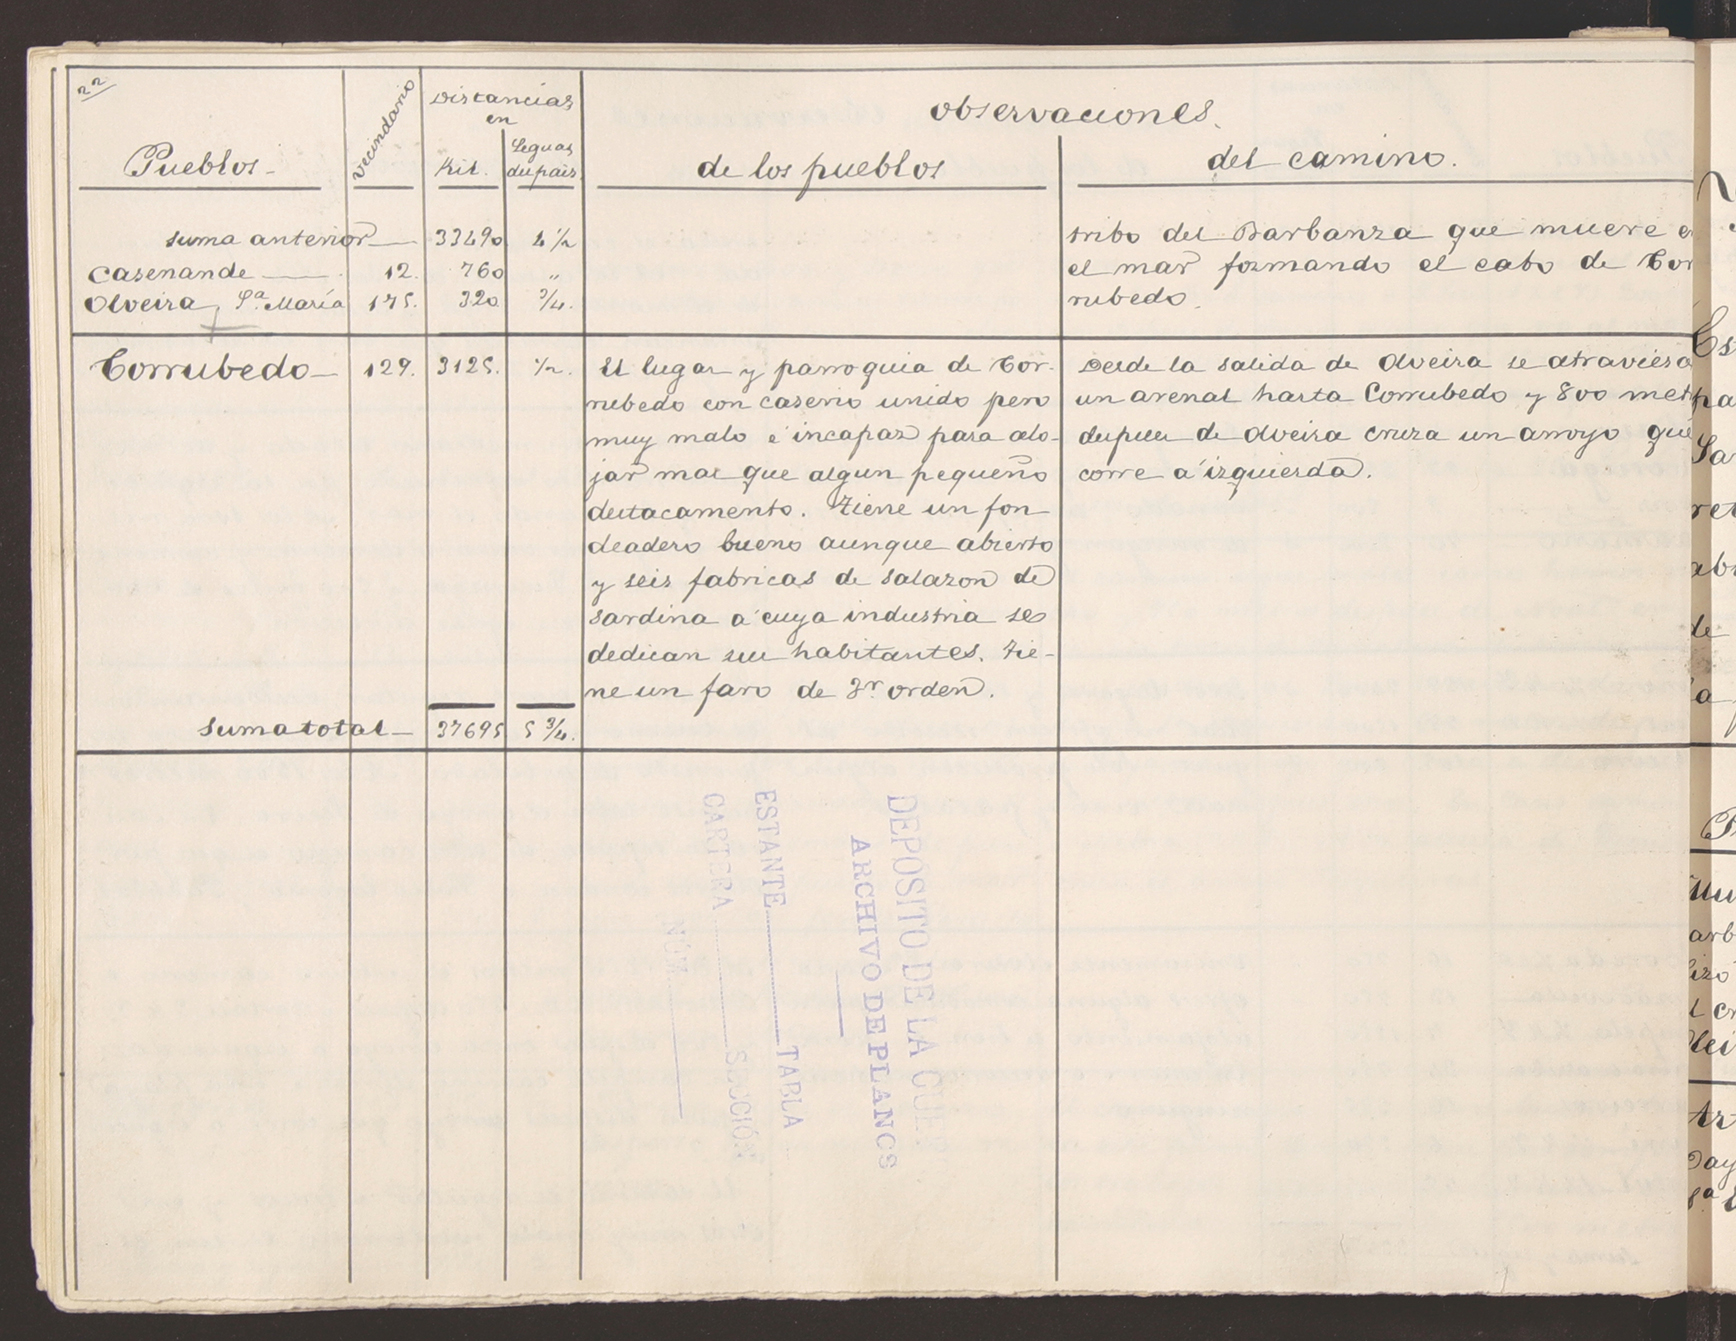 22
Pueblos
vecindario
Distancias
en
Kil.
Leguas
del pais
observaciones.
de los pueblos
del camino.
suma anterior 33490 4 1/2
Casenande 12. 760 "
Olveira, Sª. María 175. 320 3/4.
tribo del Barbanza que muere e
el mar formando el cabo de Cor
rubedo.
Corrubedo 129. 3125. 1/2.
El lugar y parroquia de Cor-
rubedo con caserio unido pero
muy malo é incapaz para alo-
jar mas que algun pequeño
destacamento. Tiene un fon
deadero bueno aunque abierto
y seis fabricas de salazon de
sardina á cuya industria se
dedican sus habitantes. Tie-
ne un faro de 3r orden.
Desde la salida de Olveira se atraviesa
un arenal hasta Corrubedo y 800 met
despues de Olveira cruza un arroyo que
corre á izquierda.
suma total 37695 5 3/4.
DEPOSITO DE LA GUE
ARCHIVO DE PLANOS
ESTANTE TABLA
CARTERA SECCIÓN
NÚM